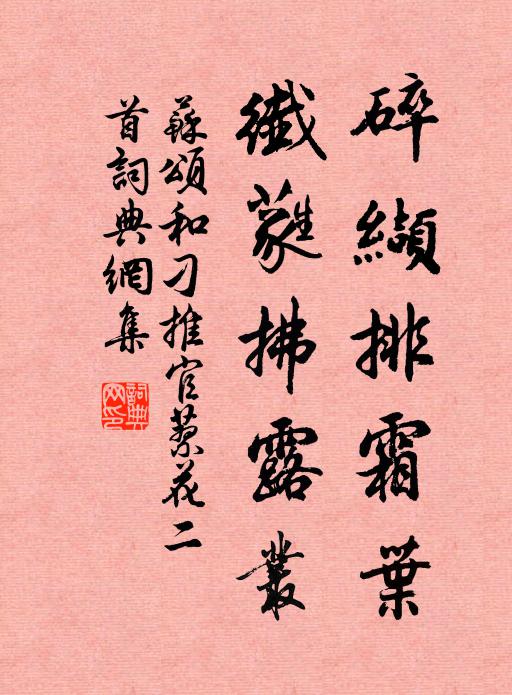 碎纈排霜葉
纖蕤拂露叢
蘇頌和刁推官蓼花二
首詞典網集
詞典網印